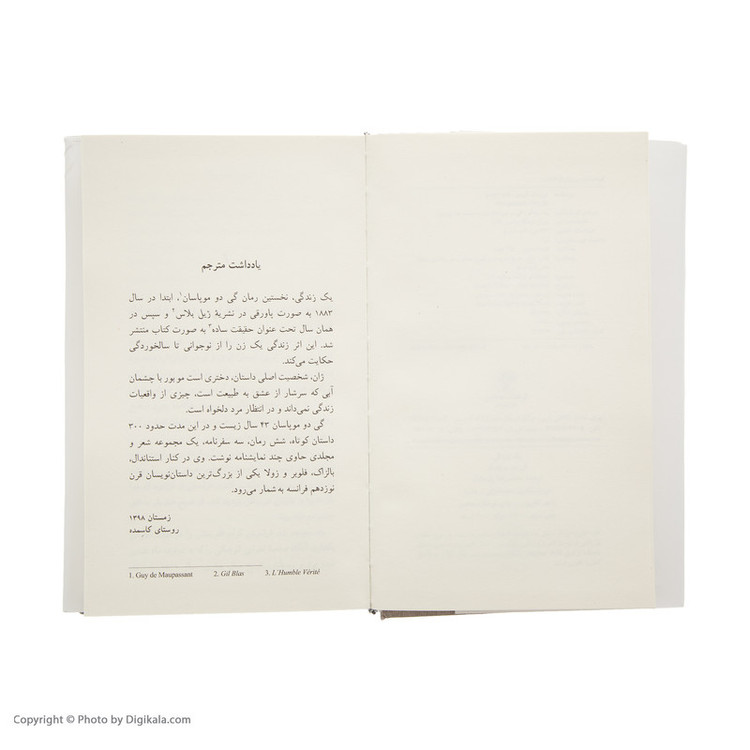 یادداشت مترجم
یک زندگی، نخستین رمان گی دو موپاسان۱، ابتدا در سال
۱۸۸۳ به صورت پاورقی در نشریهٔ ژیل بلاس۲ و سپس در
همان سال تحت عنوان حقیقت ساده۳ به صورت کتاب منتشر
شد. این اثر زندگی یک زن را از نوجوانی تا سالخوردگی
حکایت می‌کند.
ژان، شخصیت اصلی داستان، دختری است موبور با چشمان
آبی که سرشار از عشق به طبیعت است، چیزی از واقعیات
زندگی نمی‌داند و در انتظار مرد دلخواه است.
گی دو موپاسان ۴۳ سال زیست و در این مدت حدود ۳۰۰
داستان کوتاه، شش رمان، سه سفرنامه، یک مجموعه شعر و
مجلدی حاوی چند نمایشنامه نوشت. وی در کنار استاندال،
بالزاک، فلوبر و زولا یکی از بزرگ‌ترین داستان‌نویسان قرن
نوزدهم فرانسه به شمار می‌رود.
زمستان ۱۳۹۸
روستای کاسِمده
1. Guy de Maupassant 2. Gil Blas 3. L'Humble Vérité
Copyright © Photo by Digikala.com